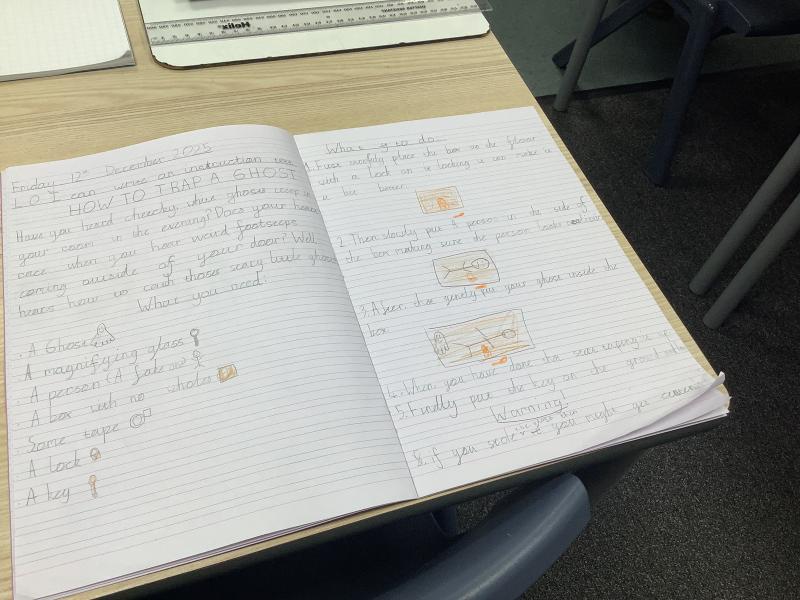 Friday 12th December 2025
L.O I can write an instruction text
HOW TO TRAP A GHOST
Have you heard cheecky, white ghoses creep in
your room in the evening? Does your heart
race when you hear weird footseeps
coming outside of your door? Well
hears how to cach thoses scary little ghoses
What you need!
. A Ghose
. A magnifying glass
. A person (A fake one)
. A box with no wholes
. Some tape
. A lock
. A key
What to do
1. First carefully place the box on the floor
with a lock on it locking it can make it
a bit beter.
2. Then slowly put a person in the side of
the box making sure the person looks
3. After that gently put your ghost inside the
box.
4. When you have done that start taping it up
5. Finally put the key on the ground
Warning!
if you you might get
Helix